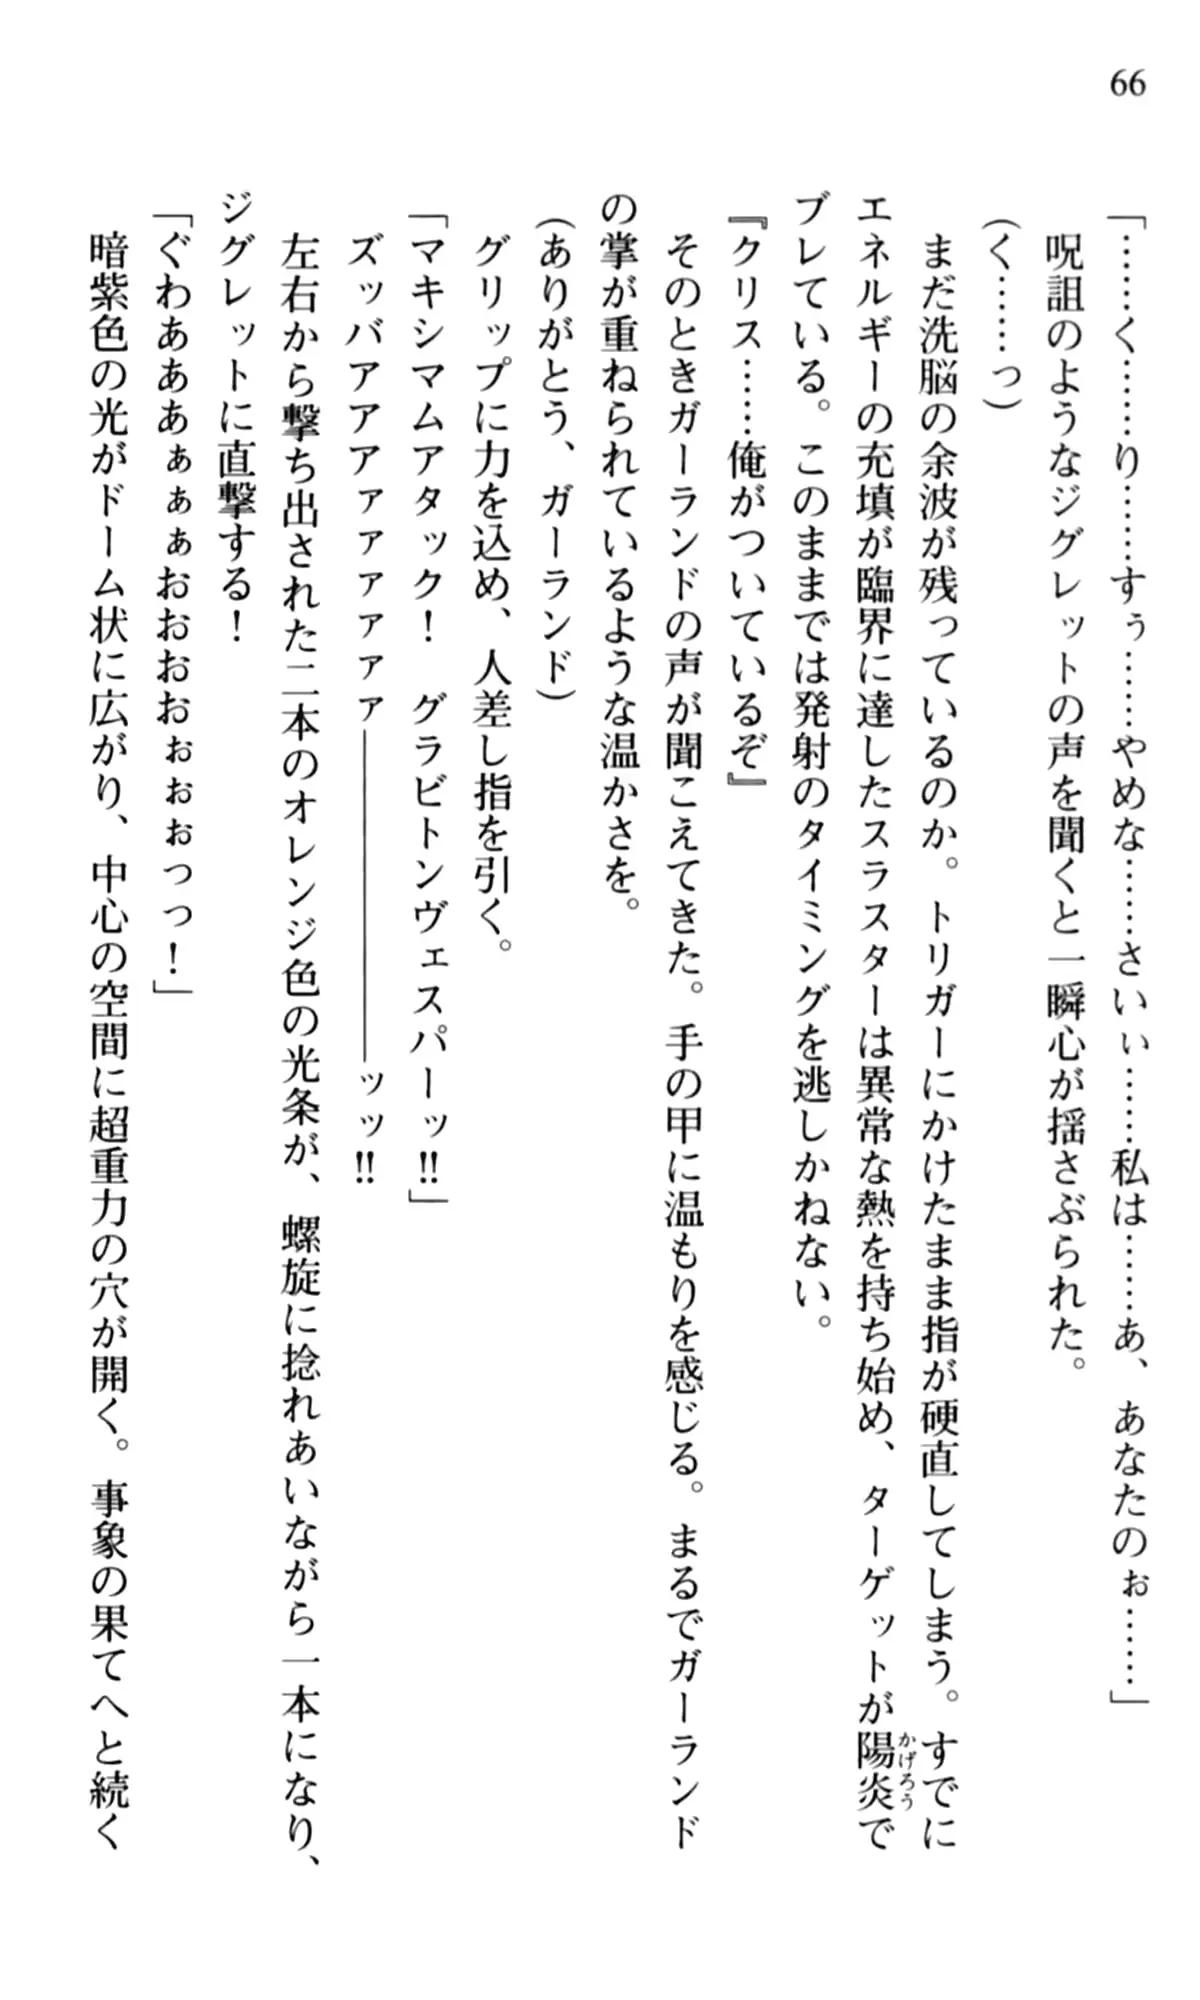 66
「……く……り……すぅ……やめな……さいぃ……私は……あ、あなたのぉ……」
呪詛のようなジグレットの声を聞くと一瞬心が揺さぶられた。
（く……っ）
まだ洗脳の余波が残っているのか。トリガーにかけたまま指が硬直してしまう。すでに
エネルギーの充填が臨界に達したスラスターは異常な熱を持ち始め、ターゲットが陽炎で
かげろう
ブレている。このままでは発射のタイミングを逃しかねない。
『クリス……俺がついているぞ』
そのときガーランドの声が聞こえてきた。手の甲に温もりを感じる。まるでガーランド
の掌が重ねられているような温かさを。
（ありがとう、ガーランド）
グリップに力を込め、人差し指を引く。
「マキシマムアタック！　グラビトンヴェスパーッ‼」
ズッバアアアァァァァァァ――――――――ッッ‼
左右から撃ち出された二本のオレンジ色の光条が、螺旋に捻れあいながら一本になり、
ジグレットに直撃する！
「ぐわあああぁぁぁおおおおぉぉぉっっ！」
暗紫色の光がドーム状に広がり、中心の空間に超重力の穴が開く。事象の果てへと続く